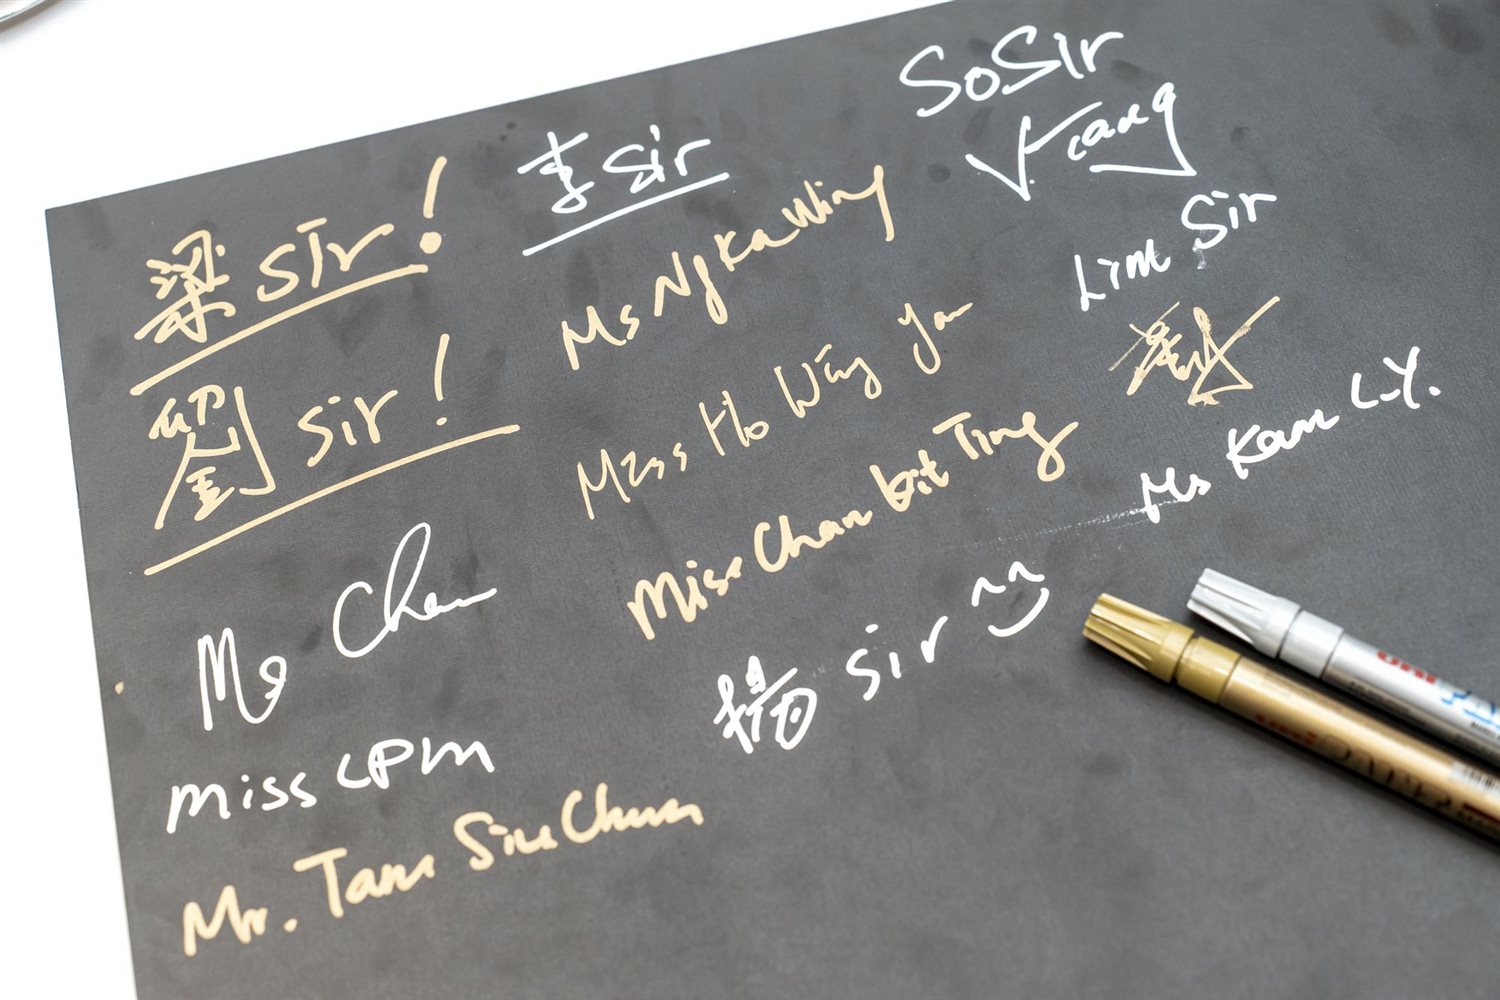 梁 sir!
劉 sir!
Ms Chan
Miss LPM
Mr. Tam Siu Chun
李 sir
Ms Ng Ka Wing
Miss Ho Wing Yan
Miss Chan bit Ting
楊 sir
So Sir
Lim Sir
Ms Kam L.Y.
uni
uni